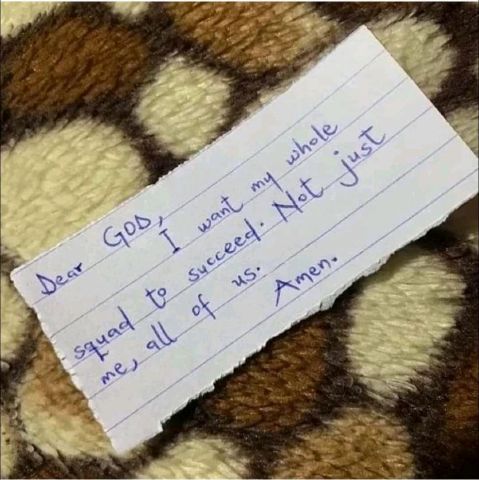 Dear GOD,
I want my whole
squad to succeed. Not just
me, all of us.
Amen.